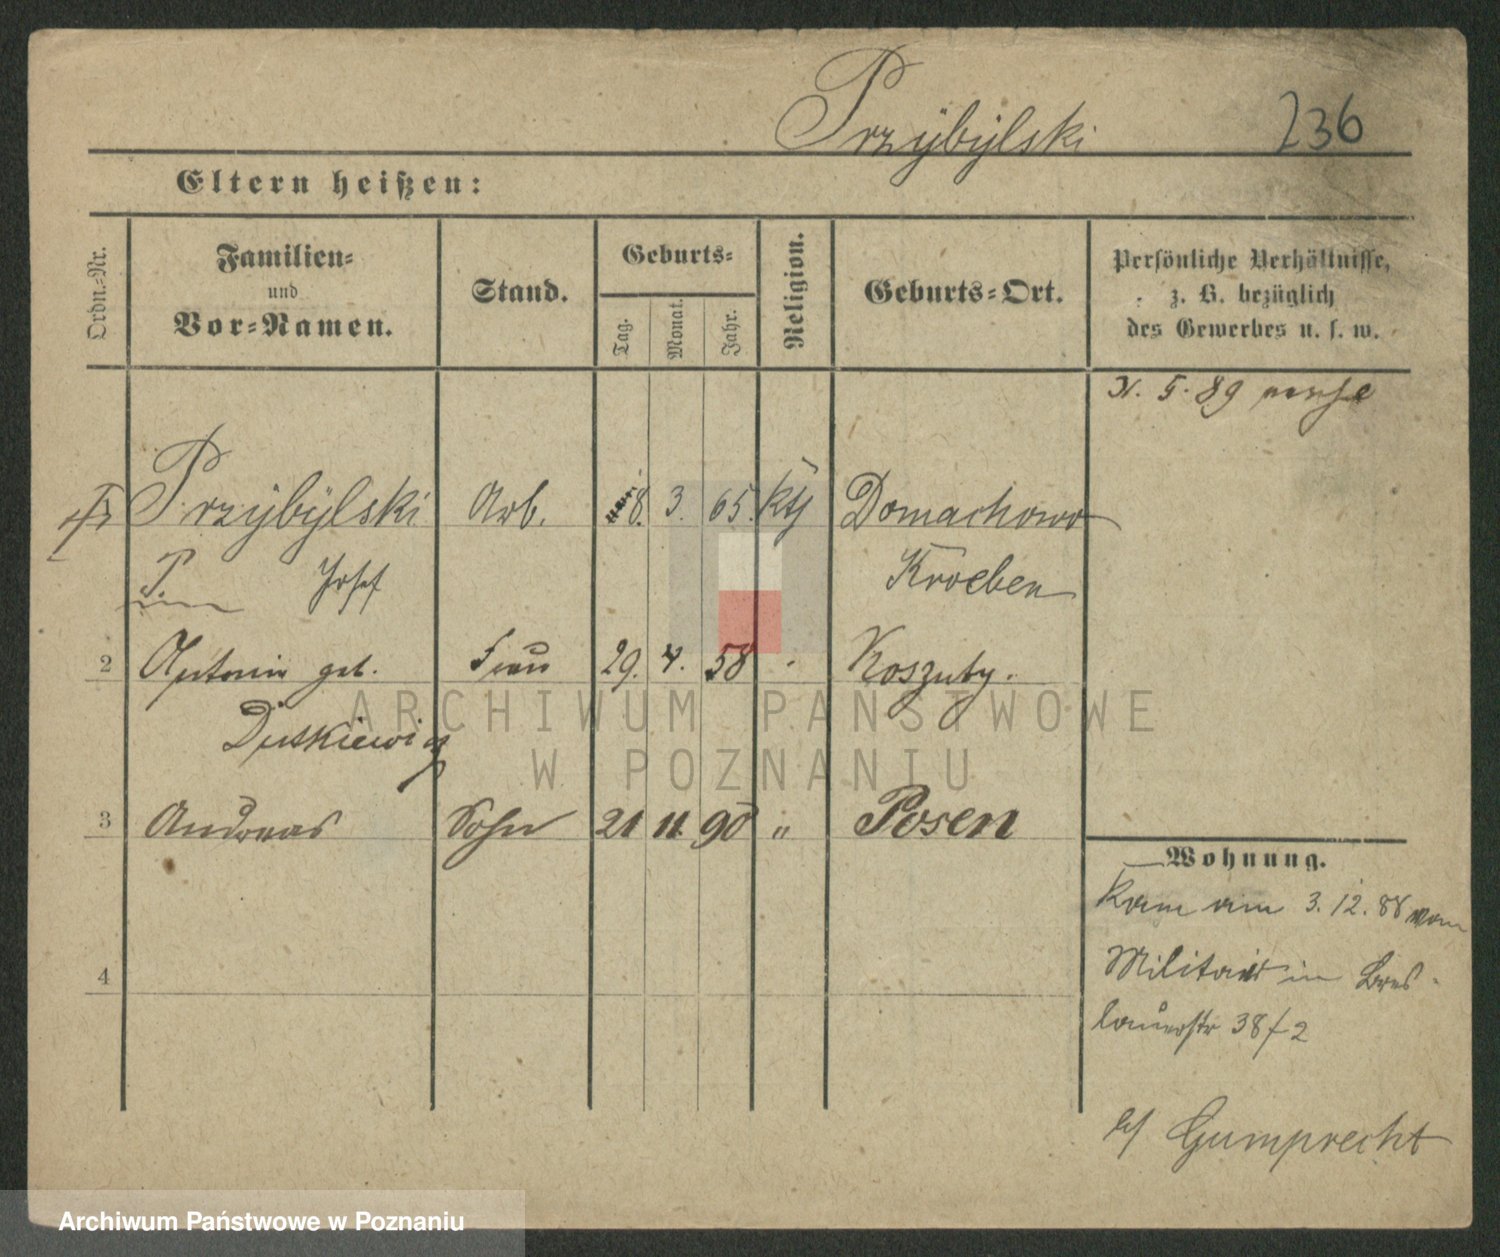 Przÿbÿlski 236
Eltern heißen:
Ordn.-Nr.
Familien-
und
Vor-Namen.
Stand.
Geburts-
Tag.
Monat.
Jahr.
Religion.
Geburts-Ort.
Persönliche Verhältnisse,
z. B. bezüglich
des Gewerbes u. s. w.
5. 89
Przÿbÿlski Arb. 8. 3. 65. kth Domachowo
P. Josef Kroeben
2 Antonie geb. Frau 29. 4. 58 Koszuty.
3 Andreas Sohn 21 11. 90 " Posen
Wohnung.
Kam am 3. 12. 88 vom
Militair in Bres-
lauerstr 38/2
b/ Gumprecht
4
ARCHIWUM PAŃSTWOWE
W POZNANIU
Archiwum Państwowe w Poznaniu